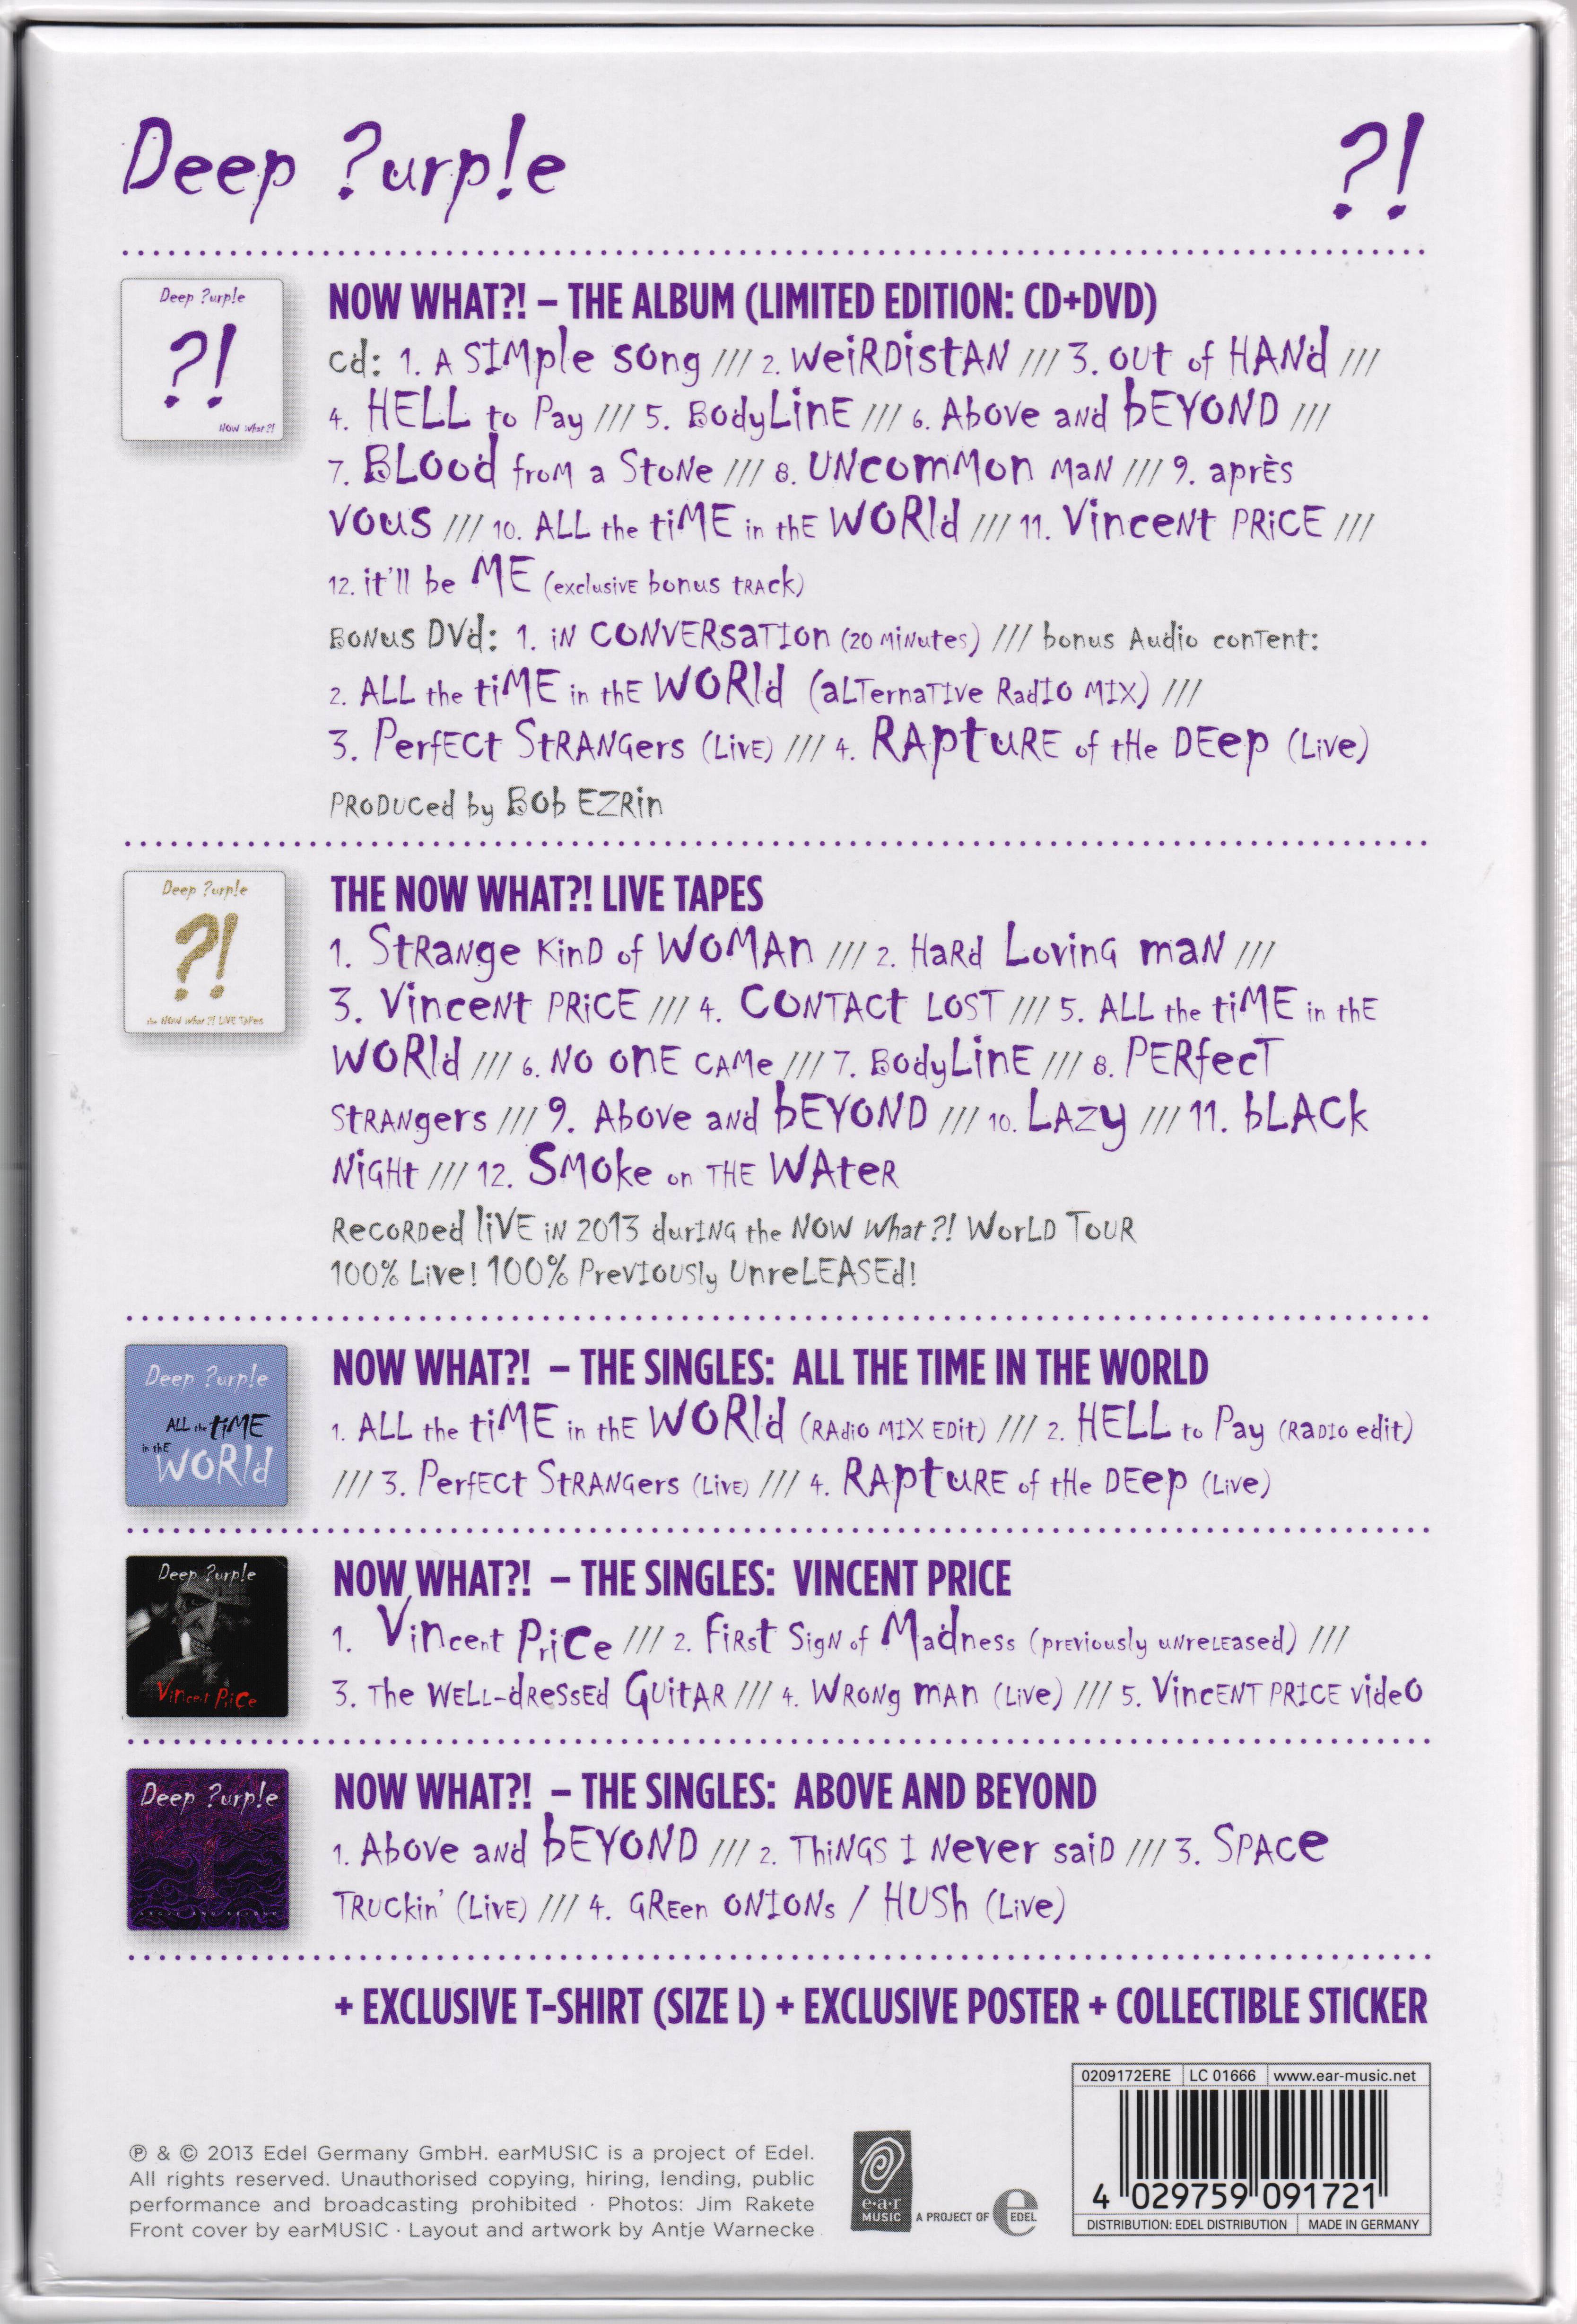 Deep ?urp!e
?!
Deep ?urp!e
?!
NOW What?!
NOW WHAT?! – THE ALBUM (LIMITED EDITION: CD+DVD)
Cd: 1. A SIMple song /// 2. WeiRDistAN /// 3. OUt of HANd ///
4. HELL to Pay /// 5. BodyLinE /// 6. Above and bEYOND ///
7. BLOod froM a StoNe /// 8. UNcomMon MaN /// 9. aprÈs
VOUS /// 10. ALL the tiME in thE WORld /// 11. VinceNt PRiCE ///
12. it'll be ME (exclusivE bonus tRAck)
BoNus DVd: 1. iN CONVERsaTIOn (20 MiNutes) /// bonus Audio conTent:
2. ALL the tiME in thE WORld (aLTernaTIve RadIO MIX) ///
3. PerfECt StRANGers (LivE) /// 4. RAptuRE of tHe DEep (Live)
PRoDUCed by BOb EZRin
Deep ?urp!e
?!
the NOW What?! LIVE TaPes
THE NOW WHAT?! LIVE TAPES
1. StRaNge KinD of WOMAn /// 2. HaRd LovinG maN ///
3. VinceNt PRiCE /// 4. CONTACt LOST /// 5. ALL the tiME in thE
WORld /// 6. NO OnE CAMe /// 7. BodyLinE /// 8. PERfecT
StRANgers /// 9. Above and bEYOND /// 10. LAZy /// 11. bLACk
NiGHt /// 12. SMOke on THE WAteR
RecoRDed liVE iN 2013 durING the NOW What?! WorLD TOUR
100% Live! 100% PrevIOUSly UnreLEASEd!
Deep ?urp!e
ALL the tiME
in thE
WORld
NOW WHAT?! – THE SINGLES: ALL THE TIME IN THE WORLD
1. ALL the tiME in thE WORld (RAdio MIX EDit) /// 2. HELL to Pay (RaDIO edit)
/// 3. PerfECt StRANGers (LivE) /// 4. RAptuRE of tHe DEep (Live)
Deep ?urp!e
Vincent PriCe
NOW WHAT?! – THE SINGLES: VINCENT PRICE
1. Vincent PriCe /// 2. FiRst SigN of Madness (prEviously uNreLEased) ///
3. The WELL-dReSsEd GUitAR /// 4. WRoNg mAn (Live) /// 5. VincENT PRICE videO
Deep ?urp!e
NOW WHAT?! – THE SINGLES: ABOVE AND BEYOND
1. Above and bEYOND /// 2. ThiNGS I Never saiD /// 3. SPACe
TRUCkin' (LivE) /// 4. GREen ONIONs / HUSh (Live)
+ EXCLUSIVE T-SHIRT (SIZE L) + EXCLUSIVE POSTER + COLLECTIBLE STICKER
0209172ERE LC 01666 www.ear-music.net
4 029759 091721
DISTRIBUTION: EDEL DISTRIBUTION MADE IN GERMANY
℗ & © 2013 Edel Germany GmbH. earMUSIC is a project of Edel.
All rights reserved. Unauthorised copying, hiring, lending, public
performance and broadcasting prohibited · Photos: Jim Rakete
Front cover by earMUSIC · Layout and artwork by Antje Warnecke
e·a·r
MUSIC
A PROJECT OF
e
EDEL